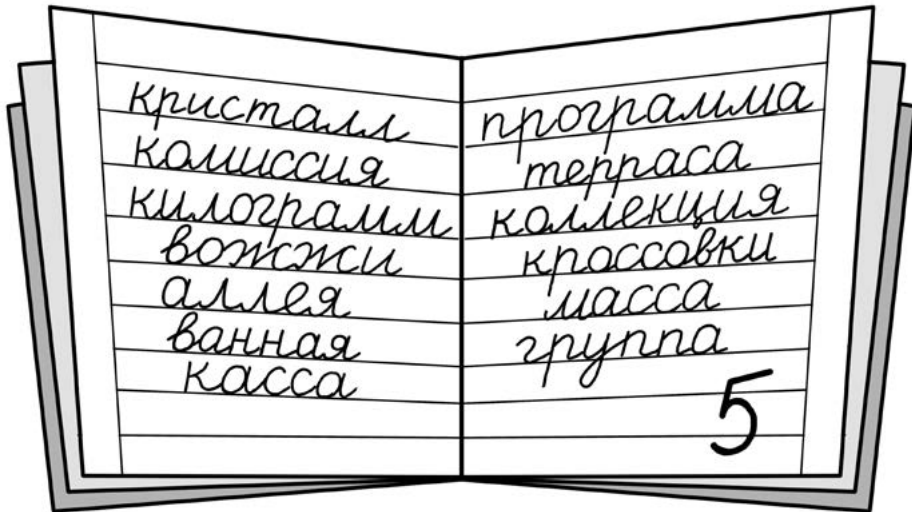 кристалл
комиссия
килограмм
вожжи
аллея
ванная
касса
программа
терраса
коллекция
кроссовки
масса
группа
5